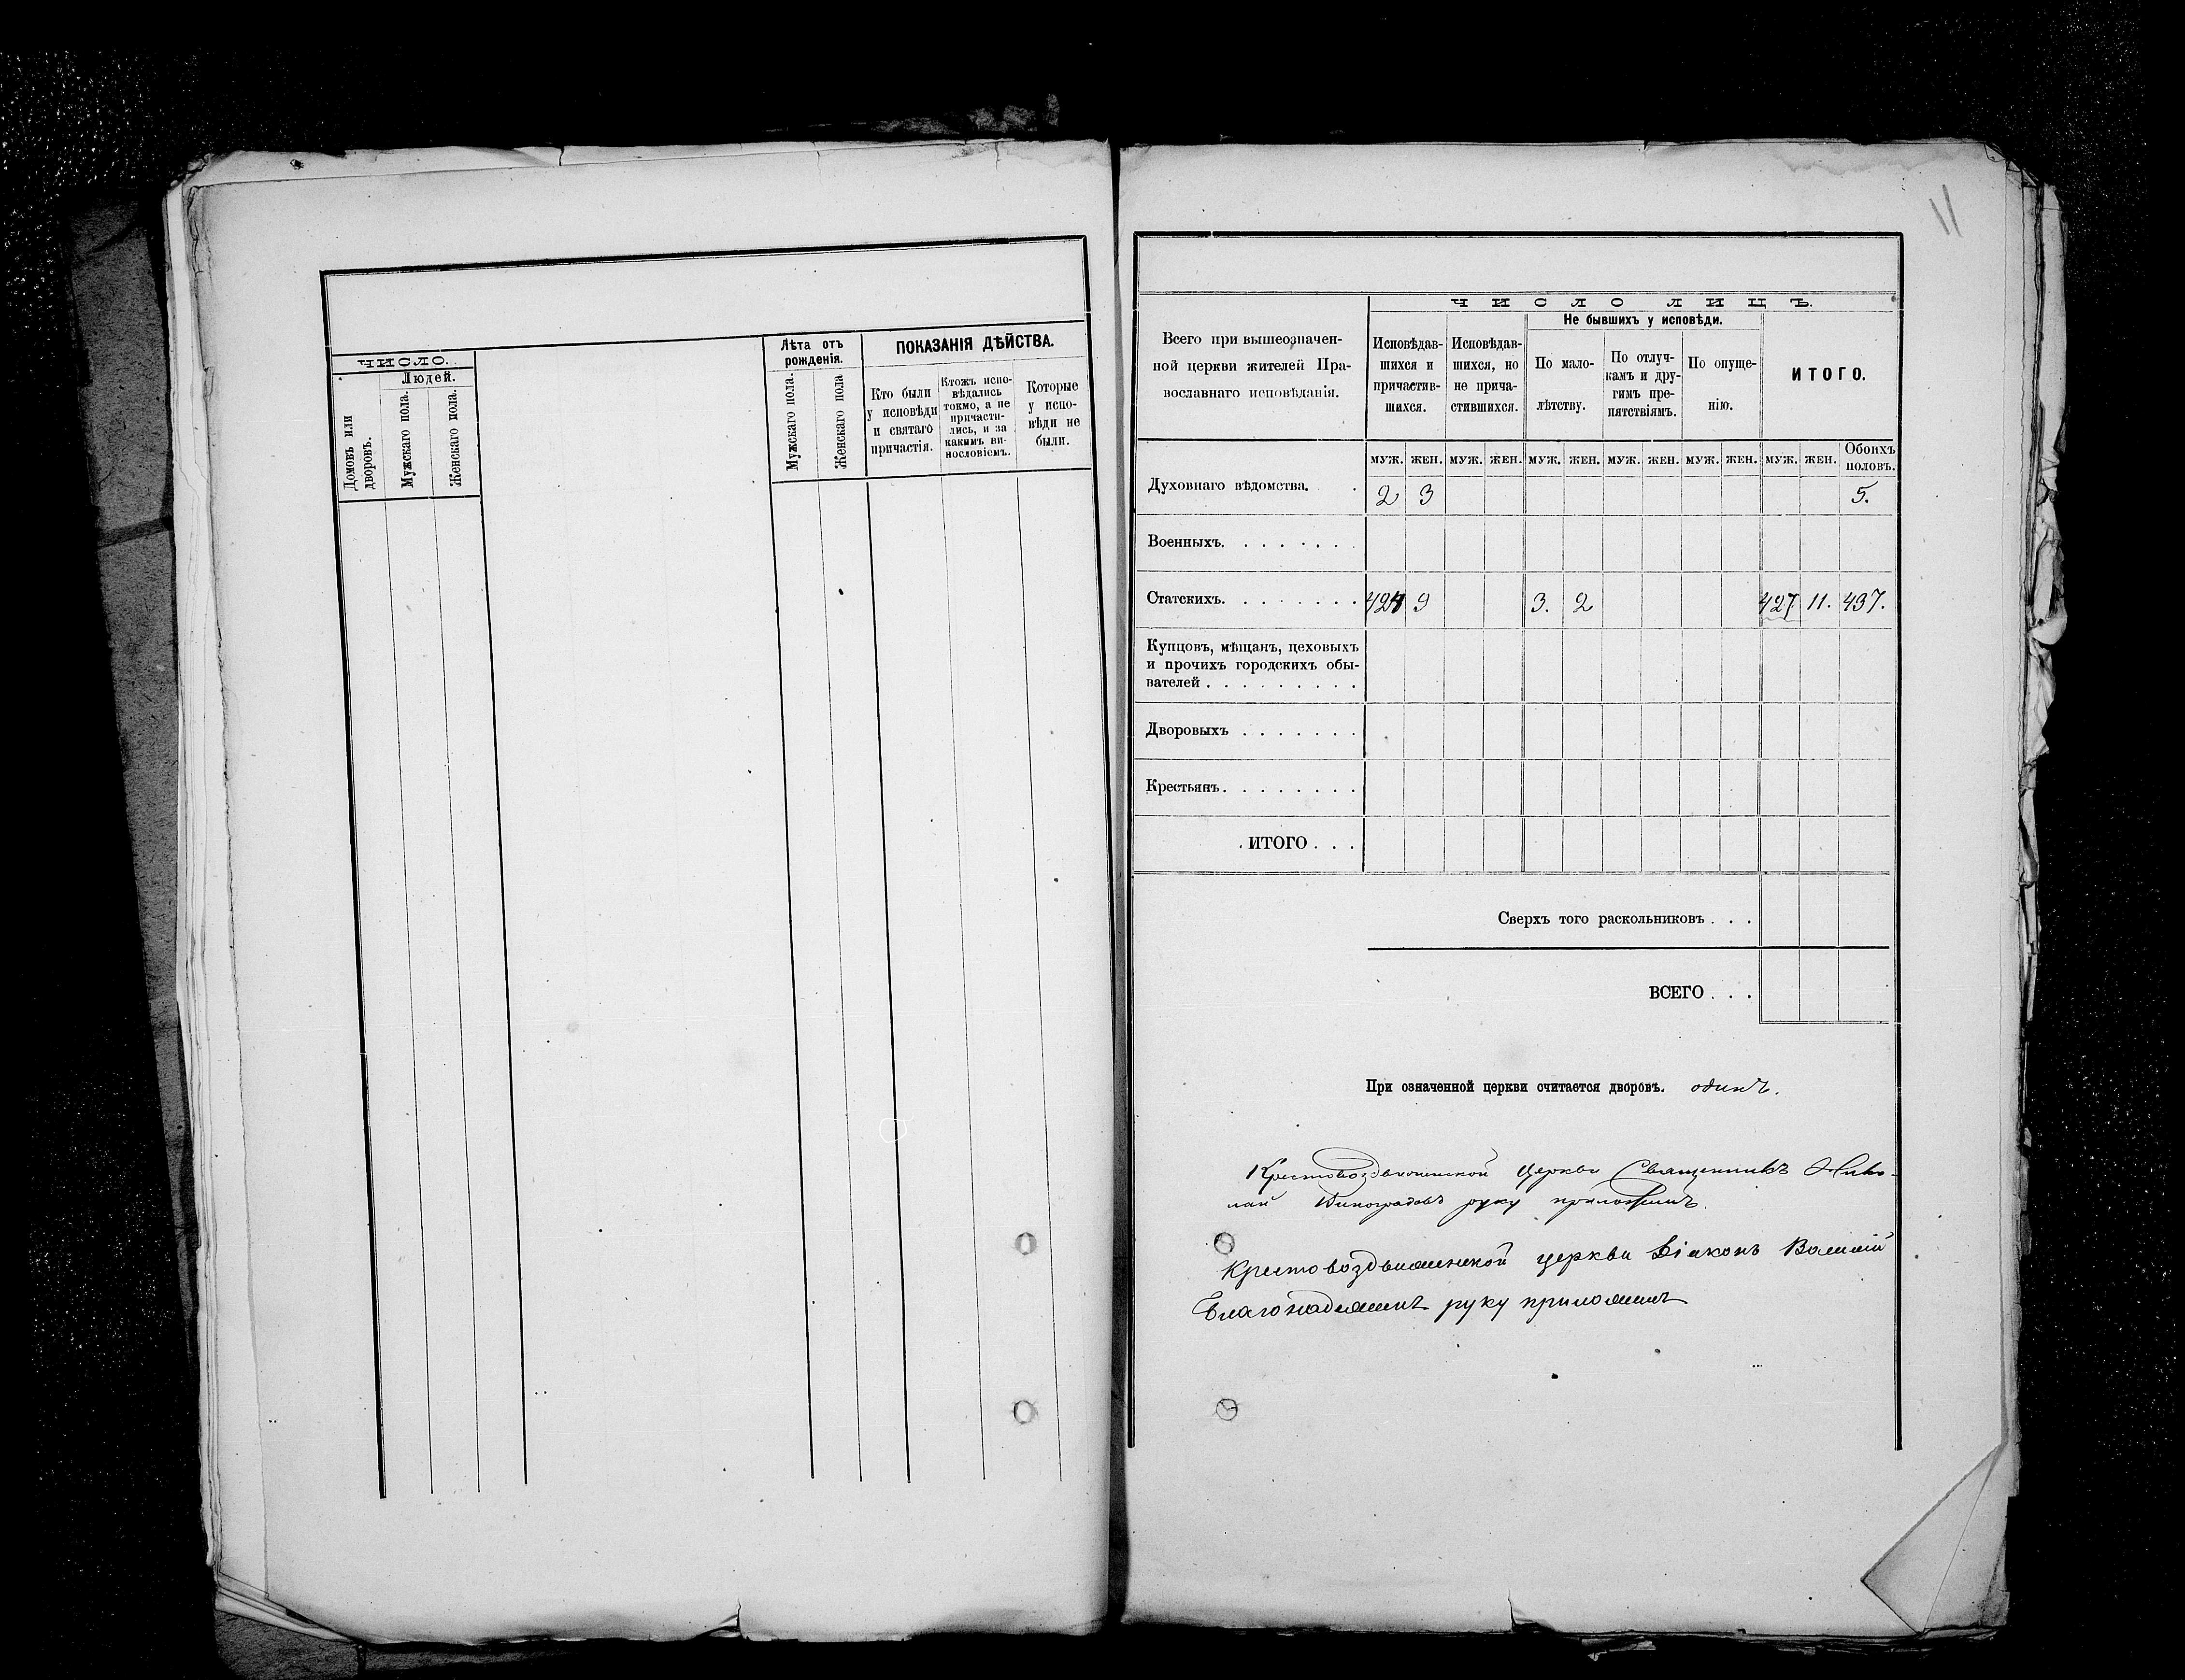 11
ЧИСЛО.
Людей.
Домовъ или дворовъ.
Мужскаго пола.
Женскаго пола.
Лѣта отъ
рожденія.
Мужскаго пола.
Женскаго пола
ПОКАЗАНІЯ ДѢЙСТВА.
Кто были
у исповѣди
и святаго
причастія.
Ктожъ испо-
вѣдались
токмо, а не
причасти-
лись, и за
какимъ ви-
нословіемъ.
Которые
у испо-
вѣди не
были.
ЧИСЛО ЛИЦЪ.
Всего при вышеозначен-
ной церкви жителей Пра-
вославнаго исповѣданія.
Исповѣдав-
шихся и
причастив-
шихся.
Исповѣдав-
шихся, но
не прича-
стившихся.
Не бывшихъ у исповѣди.
По мало-
лѣтству.
По отлуч-
камъ и дру-
гимъ пре-
пятствіямъ.
По опуще-
нію.
ИТОГО.
МУЖ. ЖЕН. МУЖ. ЖЕН. МУЖ. ЖЕН. МУЖ. ЖЕН. МУЖ. ЖЕН. МУЖ. ЖЕН. Обоихъ половъ.
Духовнаго вѣдомства. . 2 3 5.
Военныхъ. . . . . . . .
Статскихъ. . . . . . . . 424 9 3. 2 427. 11. 437.
Купцовъ, мѣщанъ, цеховыхъ
и прочихъ городскихъ обы-
вателей . . . . . . . . .
Дворовыхъ . . . . . . .
Крестьянъ. . . . . . . .
ИТОГО . . .
Сверхъ того раскольниковъ . . .
ВСЕГО . . .
При означенной церкви считается дворовъ. одинъ.
Крестовоздвиженской Церкви Священникъ Нико-
лай Виноградовъ руку приложилъ.
Крестовоздвиженской церкви Діаконъ Василій
Благонадежинъ руку приложилъ